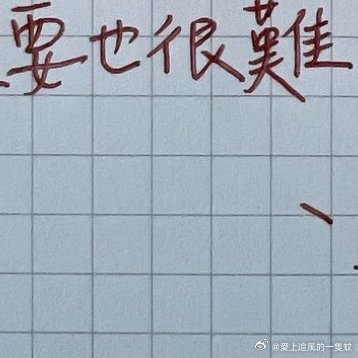 要也很難
@愛上追風的一隻蚊